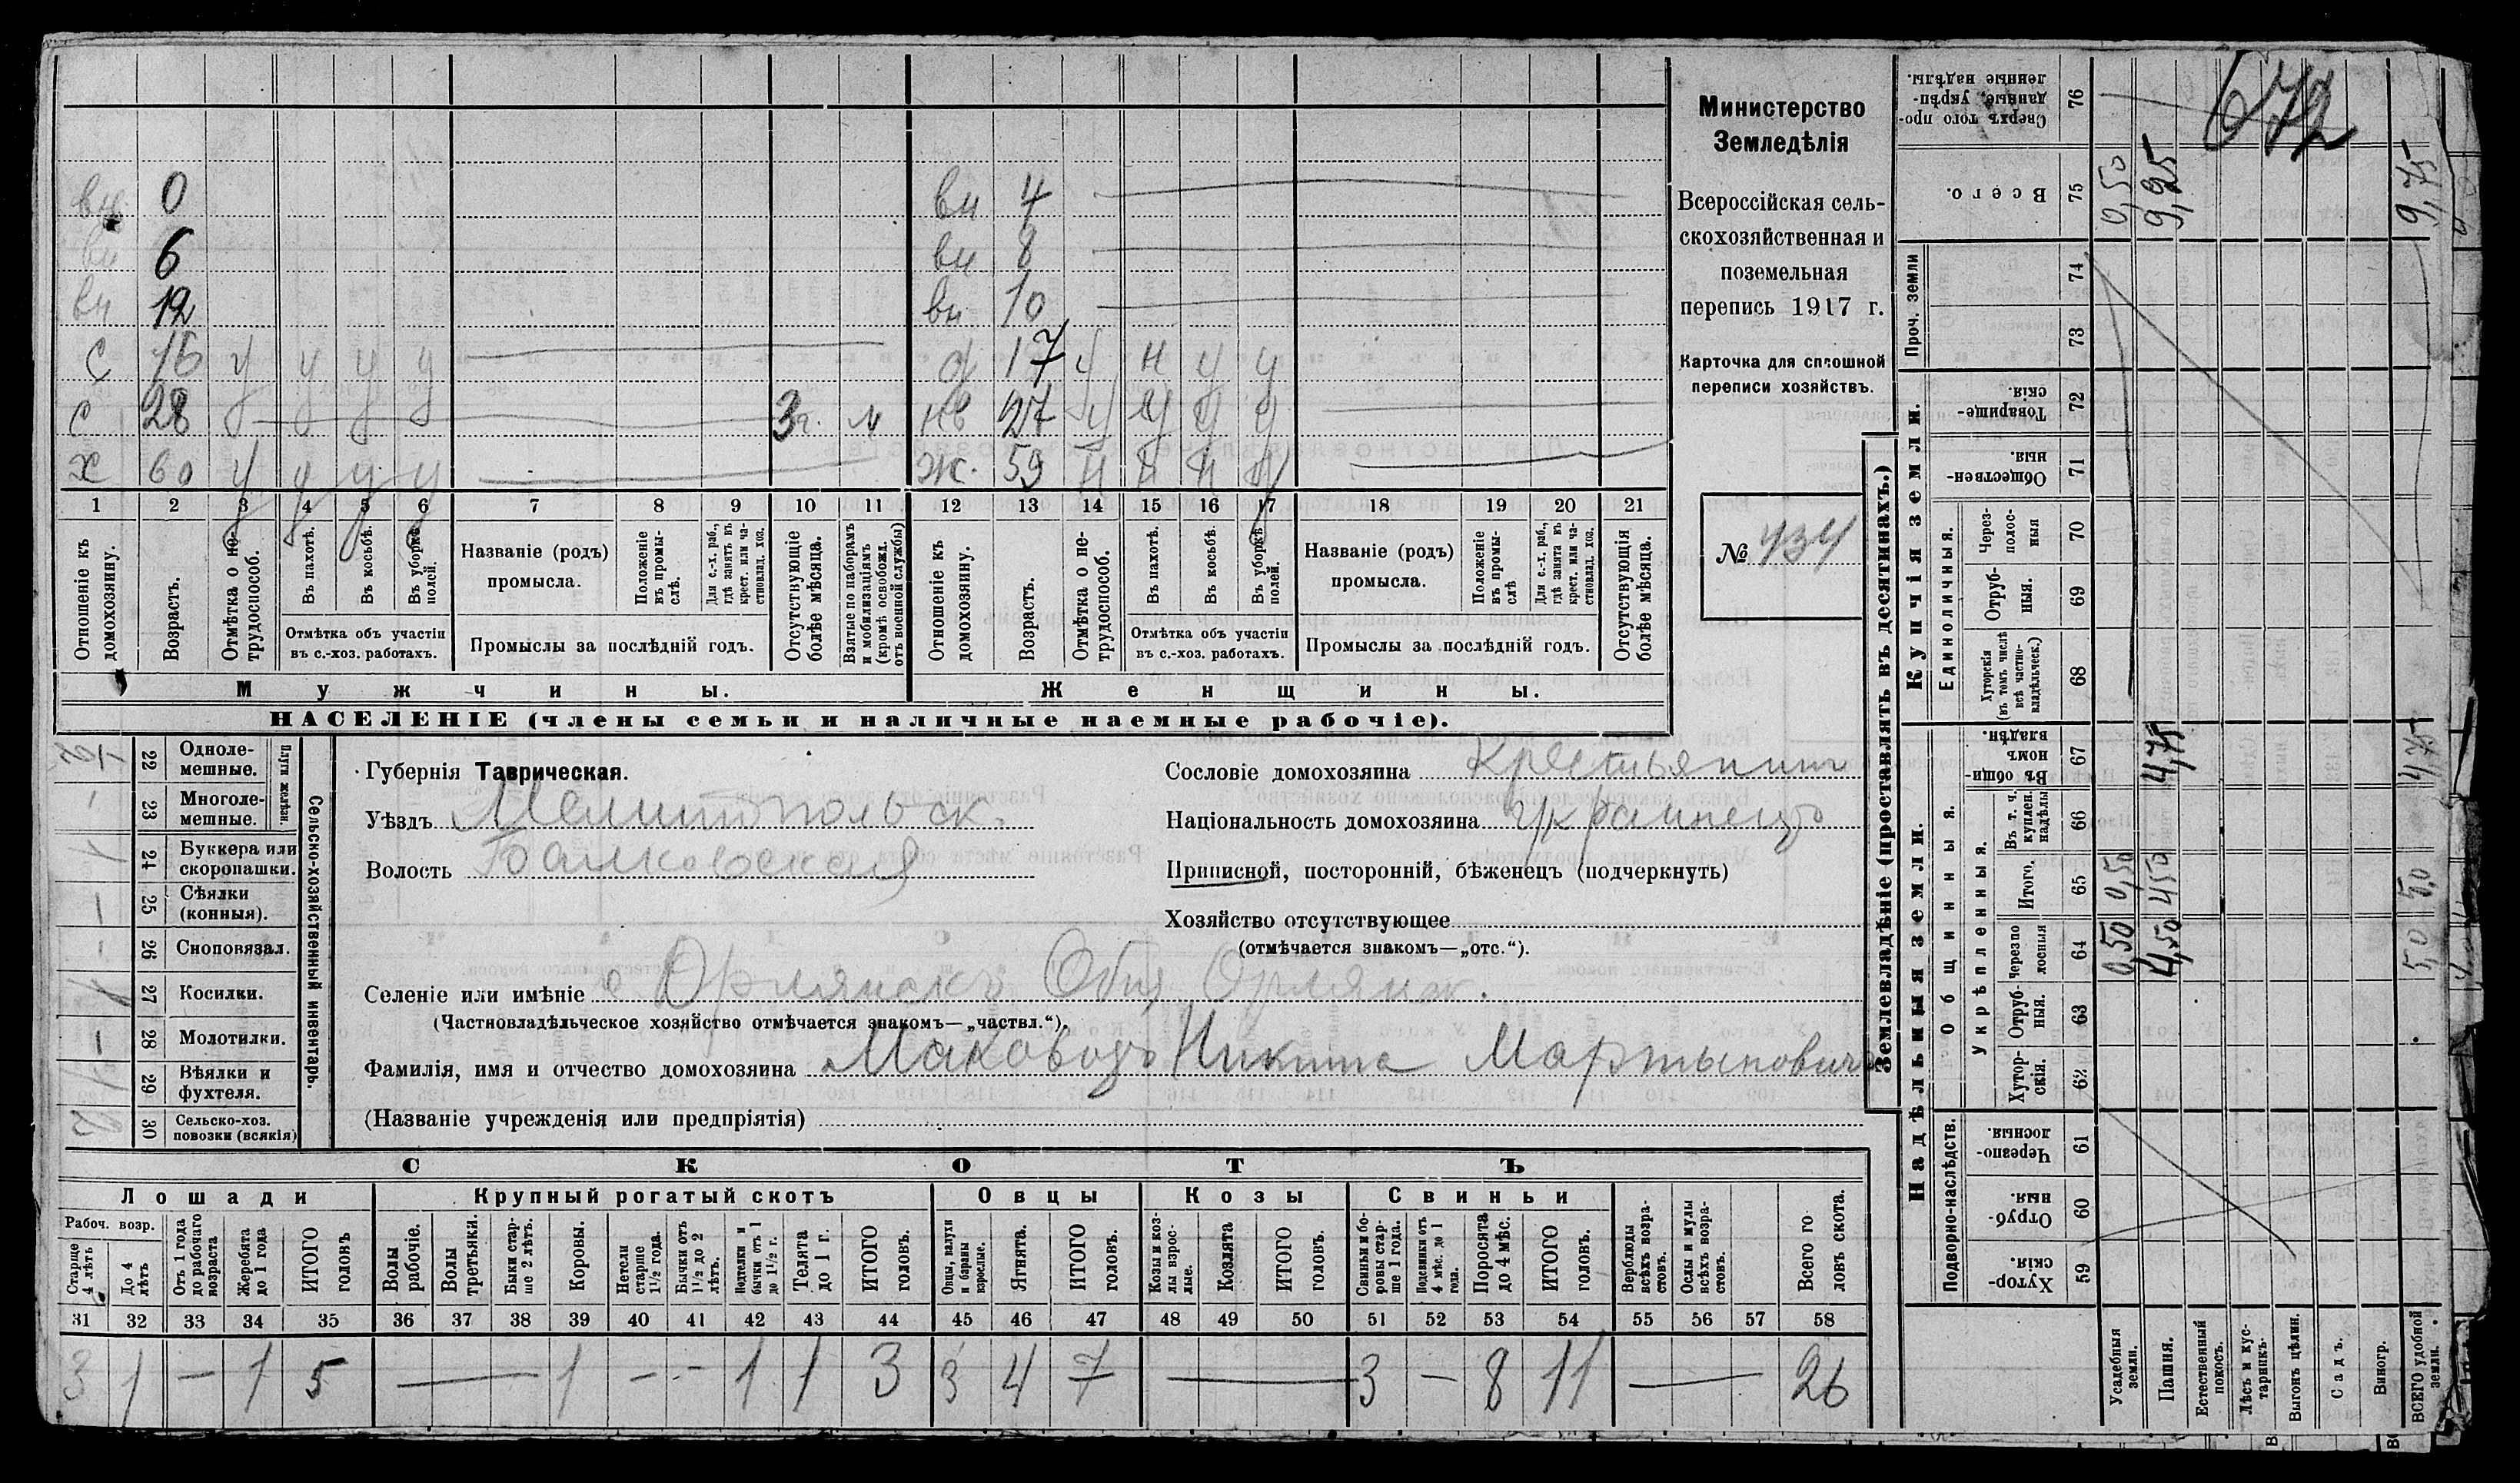 вн. 0 вн 4
вн 6 вн 8
вн 12 вн 10
с 16 у у у у д 17 у н у у
с 28 у 3 г. м нв 27 у у у у
х 60 у у у у ж. 59 н н н у
1 2 3 4 5 6 7 8 9 10 11 12 13 14 15 16 17 18 19 20 21
Отношеніе къ домохозяину.
Возрастъ.
Отмѣтка о не-трудоспособ.
Въ пахотѣ.
Въ косьбѣ.
Въ уборкѣ полей.
Отмѣтка объ участіи
въ с.-хоз. работахъ.
Названіе (родъ)
промысла.
Положеніе въ промы-слѣ.
Для с.-х. раб., гдѣ занятъ въ крест. или ча-стновлад. хоз.
Промыслы за послѣдній годъ.
Отсутствующіе болѣе мѣсяца.
Взятые по наборамъ и мобилизаціямъ (кромѣ освобожд. отъ военной службы)
Отношеніе къ домохозяину.
Возрастъ.
Отмѣтка о не-трудоспособ.
Въ пахотѣ.
Въ косьбѣ.
Въ уборкѣ полей.
Отмѣтка объ участіи
въ с.-хоз. работахъ.
Названіе (родъ)
промысла.
Положеніе въ промы-слѣ
Для с.-х. раб., гдѣ занята въ крест. или ча-стновлад. хоз.
Промыслы за послѣдній годъ.
Отсутствующія болѣе мѣсяца.
Мужчины. Женщины.
НАСЕЛЕНІЕ (члены семьи и наличные наемные рабочіе).
Министерство
Земледѣлія
Всероссійская сель-
скохозяйственная и
поземельная
перепись 1917 г.
Карточка для сплошной
переписи хозяйствъ.
№ 434
Сельско-хозяйственный инвентарь.
Плуги желѣзн.
22 Одноле-мешные.
23 Многоле-мешные.
24 Буккера или скоропашки.
25 Сѣялки (конныя).
26 Сноповязал.
27 Косилки.
28 Молотилки.
29 Вѣялки и фухтеля.
30 Сельско-хоз. повозки (всякія)
Губернія Таврическая.
Уѣздъ Мелитопольск.
Волость Балковская
Сословіе домохозяина крестьянинъ
Національность домохозяина украинецъ
Приписной, посторонній, бѣженецъ (подчеркнуть)
Хозяйство отсутствующее
(отмѣчается знакомъ—„отс.“).
Селеніе или имѣніе с. Орлянскъ Общ Орлянск.
(Частновладѣльческое хозяйство отмѣчается знакомъ—„частвл.“).
Фамилія, имя и отчество домохозяина Маховодъ Никита Мартыновичъ
(Названіе учрежденія или предпріятія)
СКОТЪ
Лошади Крупный рогатый скотъ Овцы Козы Свиньи
Рабоч. возр.
Старше 4 лѣтъ
До 4 лѣтъ
Отъ 1 года до рабочаго возраста
Жеребята до 1 года
ИТОГО головъ
Волы рабочіе.
Волы третьяки.
Быки стар-ше 2 лѣтъ.
Коровы.
Нетели старше 1½ года.
Бычки отъ 1½ до 2 лѣтъ.
Подтелки и бычки отъ 1 до 1½ г.
Телята до 1 г.
ИТОГО головъ.
Овцы, валухи и бараны взрослые.
Ягнята.
ИТОГО головъ.
Козы и коз-лы взрос-лые.
Козлята
ИТОГО головъ.
Свиньи и бо-ровы стар-ше 1 года.
Подсвинки отъ 4 мѣс. до 1 года.
Поросята до 4 мѣс.
ИТОГО головъ.
Верблюды всѣхъ возра-стовъ.
Ослы и мулы всѣхъ возра-стовъ.
Всего го-ловъ скота.
31 32 33 34 35 36 37 38 39 40 41 42 43 44 45 46 47 48 49 50 51 52 53 54 55 56 57 58
3 1 — 1 5 — 1 - - 1 1 3 3 4 7 — 3 — 8 11 — 26
Землевладѣніе (проставлять въ десятинахъ.)
Купчія земли.
Надѣльныя земли.
76 Сверхъ того про-данные, укрѣп-ленные надѣлы.
75 Всего. 0,50 9,25 9,75
Проч. земли
74
73
72 Товарище-скія.
71 Обществен-ныя.
Единоличныя.
70 Через-полос-ныя
69 Отруб-ныя.
68 Хуторскія (въ томъ числѣ всѣ частно-владѣльческ.)
Общинныя.
67 Въ общин-номъ владѣн. 4,75 4,75
Укрѣпленныя.
66 Въ т. ч. куплен. надѣлы
65 Итого. 0,50 4,50 5,0
64 Черезпо-лосныя 0,50 4,50 5,0
63 Отруб-ныя.
62 Хутор-скія.
Подворно-наслѣдств.
61 Черезпо-лосныя.
60 Отруб-ныя.
59 Хутор-скія.
Усадебныя земли.
Пашня.
Естественный покосъ.
Лѣсъ и кус-тарникъ.
Выгонъ цѣлин.
Садъ.
Виногр.
ВСЕГО удобной земли.
672